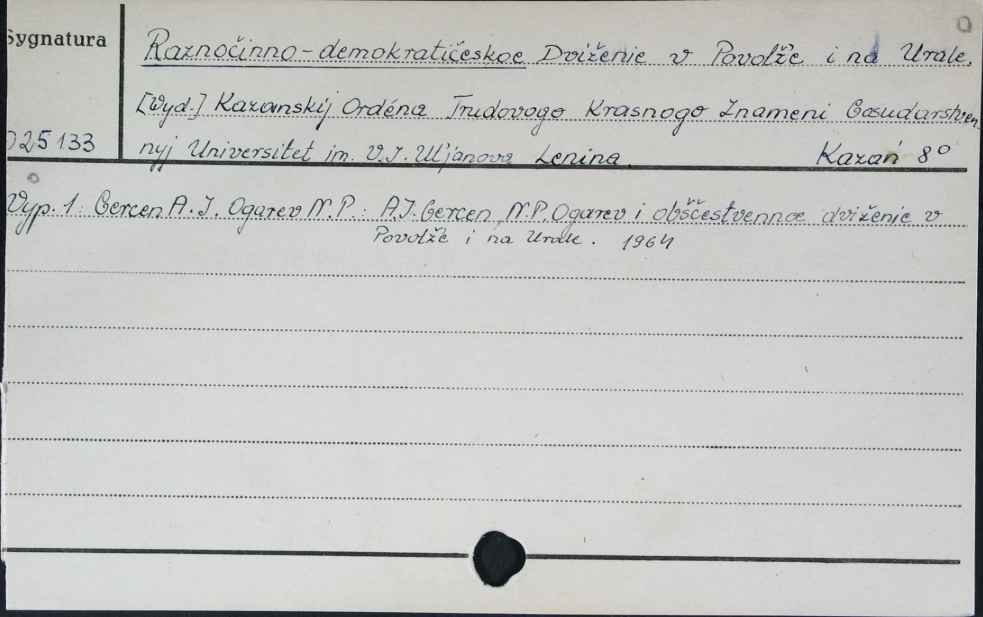 Sygnatura
Raznočinno-demokratičeskoe Dviženie v Povolž'e i na Urale.
[Wyd.] Kazanskij Ordéna Trudovogo Krasnogo Znameni Gosudarstven
025133
nyj Universitet im. V.I. Ul'janova Lenina. Kazań 8°
Vyp. 1: Gercen A.I. Ogarev N.P.: A.I. Gercen, N.P. Ogarev i obščestvennoe dviženie v
Povolž'e i na Urale. 1964